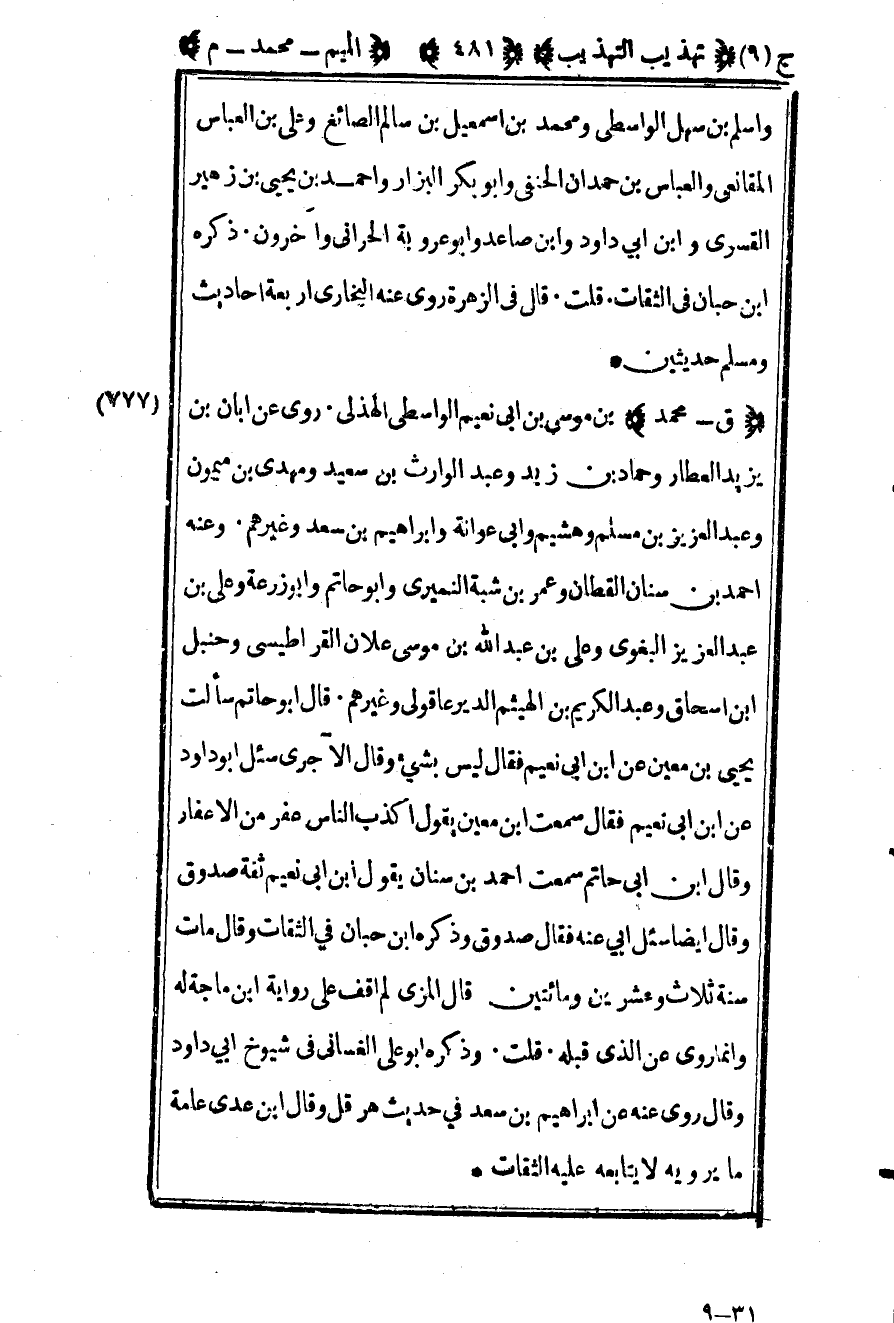 ج (٩) ﴿ تهذيب التهذيب ﴾ ﴿ ٤٨١ ﴾ ﴿ الميم ـ محمد ـ م ﴾
واسلم بن سهل الواسطى ومحمد بن اسمعيل بن سالم الصائغ وعلى بن العباس
المقانعى والعباس بن حمدان الحنفى وابو بكر البزار واحمد بن يحيى بن زهير
القسرى و ابن ابي داود وابن صاعد وابوعروبة الحرانى وآخرون · ذكره
ابن حبان فى الثقات · قلت · قال فى الزهرة روى عنه البخارى اربعة احاديث
ومسلم حديثين •
﴿ ق ـ محمد ﴾ بن موسي بن ابى نعيم الواسطى الهذلى · روى عن ابان بن (٧٧٧)
يزيد العطار وحماد بن زيد وعبد الوارث بن سعيد ومهدى بن ميمون
وعبد العزيز بن مسلم وهشيم وابى عوانة وابراهيم بن سعد وغيرهم · وعنه
احمد بن سنان القطان وعمر بن شبة النميرى وابو حاتم وابوزرعة وعلى بن
عبد العزيز البغوى وعلى بن عبد الله بن موسى علان القراطيسى وحنبل
ابن اسحاق وعبد الكريم بن الهيثم الدير عاقولى وغيرهم · قال ابو حاتم سألت
يحيى بن معين عن ابن ابى نعيم فقال ليس بشيء وقال الآجرى سئل ابوداود
عن ابن ابى نعيم فقال سمعت ابن معين يقول اكذب الناس عفر من الاعفار
وقال ابن ابى حاتم سمعت احمد بن سنان يقول ابن ابى نعيم ثقة صدوق
وقال ايضا سئل ابي عنه فقال صدوق وذكره ابن حبان في الثقات وقال مات
سنة ثلاث وعشرين ومائتين قال المزى لم اقف على رواية ابن ماجة له
وانما روى عن الذى قبله · قلت · وذكره ابو على الغسانى فى شيوخ ابي داود
وقال روى عنه عن ابراهيم بن سعد في حديث هرقل وقال ابن عدى عامة
ما يرويه لا يتابعه عليه الثقات •
٣١ـ٩